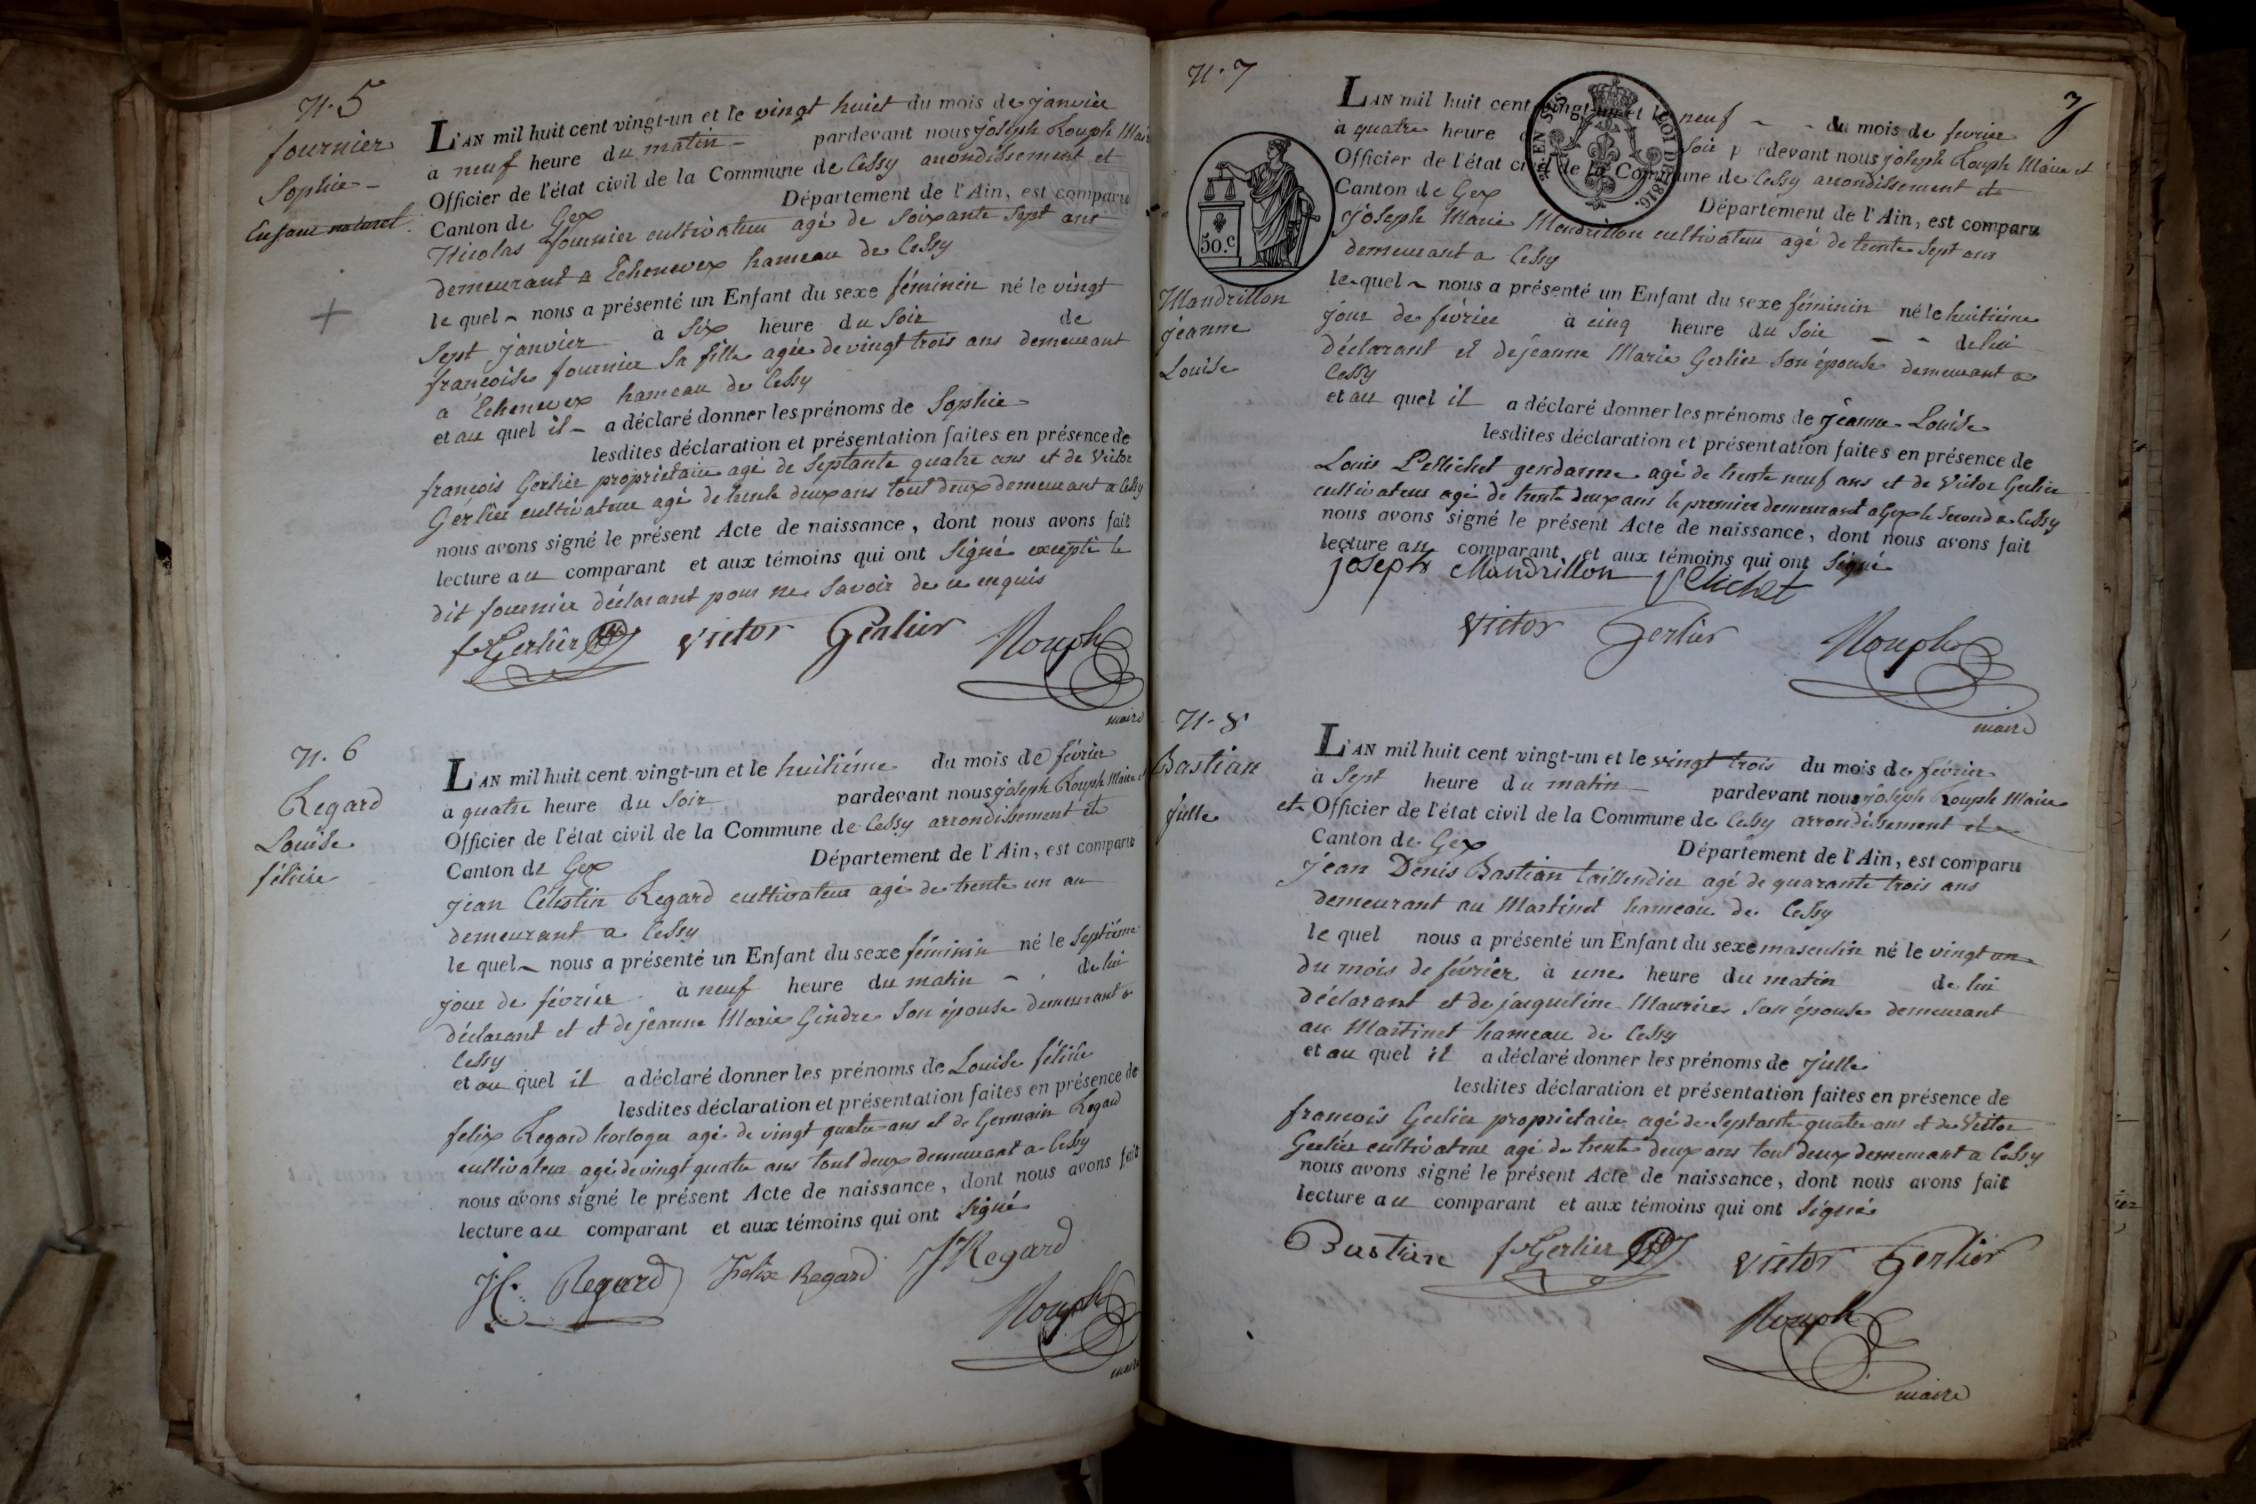 N. 5
fournier
Sophie
Enfant naturel
L'AN mil huit cent vingt-un et le vingt huict du mois de janvier
a neuf heure du matin pardevant nous joseph Rouph Maire
Officier de l'état civil de la Commune de Cessy arrondissement et
Canton de Gex Département de l'Ain, est comparu
Nicolas fournier cultivateur agé de soixante sept ans
demeurant a Echenevex hameau de Cessy
le quel nous a présenté un Enfant du sexe féminin né le vingt
sept janvier à six heure du soir de
françoise fournier sa fille agée de vingt trois ans demeurant
a Echenevex hameau de Cessy
et au quel il a déclaré donner les prénoms de Sophie
lesdites déclaration et présentation faites en présence de
françois Gerlier propriétaire agé de septante quatre ans et de Victor
Gerlier cultivateur agé de trente deux ans tout deux demeurant a Cessy
nous avons signé le présent Acte de naissance, dont nous avons fait
lecture au comparant et aux témoins qui ont signé excepté le
dit fournier déclarant pour ne savoir de ce enquis
fs Gerlier Victor Gerlier Rouph
maire
N. 6
Regard
Louise
félicie
L'AN mil huit cent vingt-un et le huitiéme du mois de février
a quatre heure du soir pardevant nous joseph Rouph Maire et
Officier de l'état civil de la Commune de Cessy arrondissement et
Canton de Gex Département de l'Ain, est comparu
jean Célestin Regard cultivateur agé de trente un an
demeurant a Cessy
le quel nous a présenté un Enfant du sexe féminin né le septiéme
jour de février à neuf heure du matin de lui
déclarant et et de jeanne Marie Gindre son épouse demeurant a
Cessy
et au quel il a déclaré donner les prénoms de Louise félicie
lesdites déclaration et présentation faites en présence de
felix Regard horloger agé de vingt quatre ans et de Germain Regard
cultivateur agé de vingt quatre ans tout deux demeurant a Cessy
nous avons signé le présent Acte de naissance, dont nous avons fait
lecture au comparant et aux témoins qui ont signé
JC Regard Felix Regard Regard
Rouph
maire
N. 7
7
EN SUS
LOI DE 1816.
50.c
Mandrillon
jeanne
Louise
L'AN mil huit cent vingt-un et le neuf du mois de fevrier
à quatre heure soir pardevant nous joseph Rouph Maire et
Officier de l'état civil de la Commune de Cessy arrondissement et
Canton de Gex Département de l'Ain, est comparu
joseph Marie Mendrillon cultivateur agé de trente sept ans
demeurant a Cessy
le quel nous a présenté un Enfant du sexe féminin né le huitiéme
jour de février à cinq heure du soir de lui
déclarant et de jeanne Marie Gerlier son épouse demeurant a
Cessy
et au quel il a déclaré donner les prénoms de jeanne Louise
lesdites déclaration et présentation faites en présence de
Louis Pellichet gendarme agé de trente neuf ans et de Victor Gerlier
cultivateur agé de trente deux ans le premier demeurant a Gex le second a Cessy
nous avons signé le présent Acte de naissance, dont nous avons fait
lecture au comparant et aux témoins qui ont signé
joseph Mandrillon Pellichet
Victor Gerlier Rouph
maire
N. 8
Bastian
julle
L'AN mil huit cent vingt-un et le vingt trois du mois de février
à sept heure du matin pardevant nous joseph Rouph Maire
et Officier de l'état civil de la Commune de Cessy arrondissement et
Canton de Gex Département de l'Ain, est comparu
jean Denis Bastian taillendier agé de quarante trois ans
demeurant au Martinet hameau de Cessy
le quel nous a présenté un Enfant du sexe masculin né le vingt un
du mois de février à une heure du matin de lui
déclarant et de jacqueline Maurice son épouse demeurant
au Martinet hameau de Cessy
et au quel il a déclaré donner les prénoms de julle
lesdites déclaration et présentation faites en présence de
francois Gerlier propriétaire agé de septante quatre ans et de Victor
Gerlier cultivateur agé de trente deux ans tout deux demeurant a Cessy
nous avons signé le présent Acte de naissance, dont nous avons fait
lecture au comparant et aux témoins qui ont signé
Bastian fs Gerlier Victor Gerlier
Rouph
maire